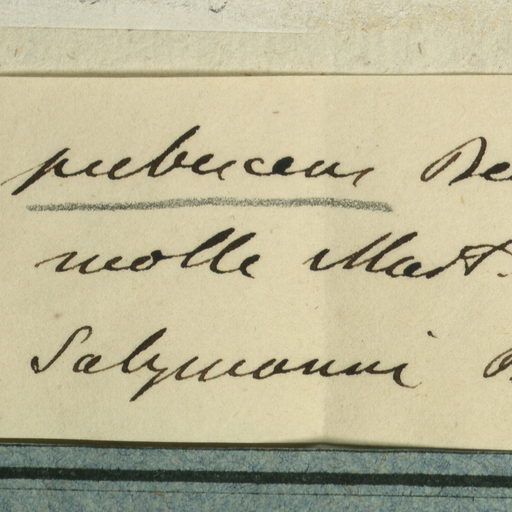 pubescens Be
molle Mart.
Salzmanni